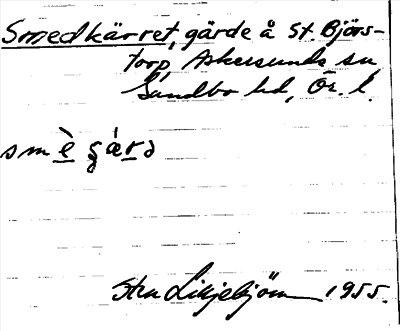 Smedkärret, gärde å St. Björs-
torp, Askersunds sn
Sundbo hd, Ör. l.
smè gárd
Sten Liljebjörn 1955.